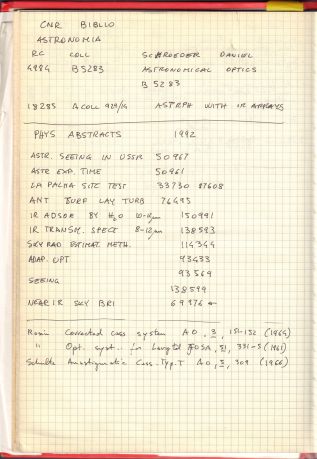 CNR BIBLIO
ASTRONOMIA
RC COLL SCHROEDER DANIEL
4984 B5283 ASTRONOMICAL OPTICS
B 5283
18285 A COLL 929/19 ASTRPH WITH IR ARRAYS
PHYS ABSTRACTS 1992
ASTR. SEEING IN USSR 50967
ASTR EXP. TIME 50961
LA PALMA SITE TEST 33730 87608
ANT SURF LAY TURB 76495
IR ADSOR BY H2O 10-14µm 150991
IR TRANSM. SPECT 8-12µm 138593
SKY RAD ESTIMAT. METH. 114344
ADAP. OPT 93433
93569
SEEING
138599
NEAR IR SKY BRI 69976 ←
Rosin Corrected cass system A O, 3, 151-152 (1964)
" Opt. syst. for Large tel JOSA, 51, 331-5 (1961)
Schulte Anastigmatic Cass. Typ. T A O, 5, 309 (1966)